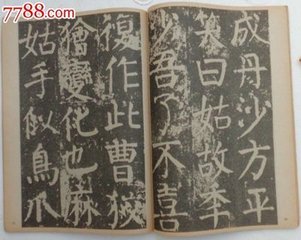 7788.com
成丹沙方平
笑曰姑故秊
少吾了不喜
復作此曹狡
獪變化也麻
姑手似鳥爪